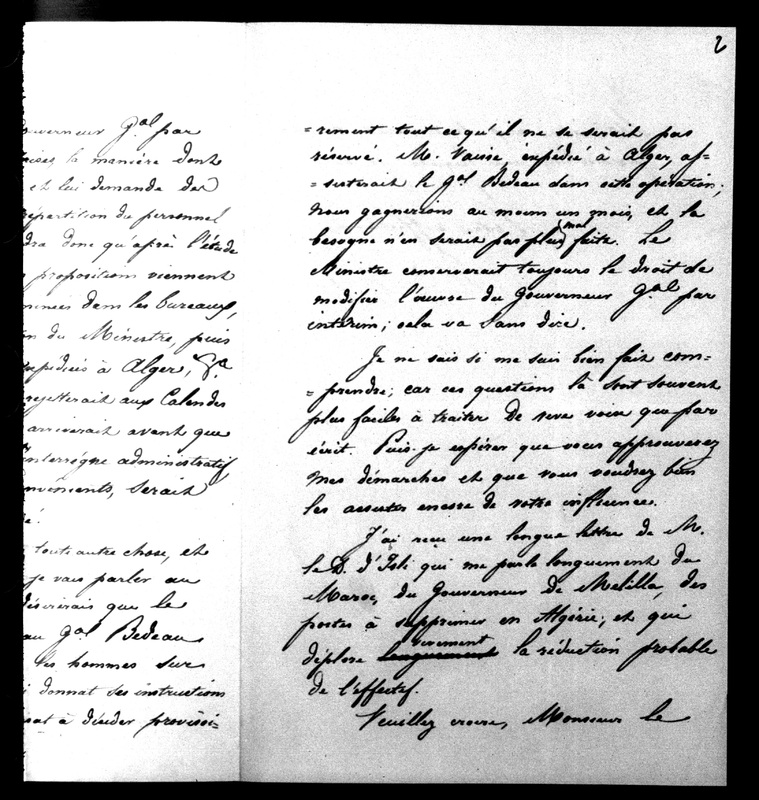 2
Gal par
la manière dont
et lui demande des
répartition du personnel
donc qu'après l'étude
propositions viennent
dans les bureaux,
du Ministre, puis
à Alger, &a
aux Calendes
arriverait avant que
administratif
serait
toute autre chose, et
je vais parler au
que le
au Gal Bedeau
les hommes sur
donnat ses instructions
à décider provisoi=
=rement tout ce qu'il ne se serait pas
réservé. M. Vaisse, expédié à Alger, as=
=sisterait le Gal Bedeau dans cette opération;
nous gagnerions au moins un mois, et la
besogne n'en serait pas plus mal faite. Le
Ministre conserverait toujours le droit de
modifier l'œuvre du Gouverneur Gal par
intérim; cela va sans dire.
Je ne sais si me suis bien fait com=
=prendre; car ces questions là sont souvent
plus faciles à traiter de vive voix que par
écrit. Puis-je espérer que vous approuverez
mes démarches et que vous voudrez bien
les assister encore de votre influence.
J'ai reçu une longue lettre de M.
le D. d'Isli qui me parle longuement du
Maroc, du Gouverneur de Melilla, des
postes à supprimer en Algérie; et qui
déplore longuement vivement la réduction probable
de l'effectif.
Veuillez croire, Monsieur le